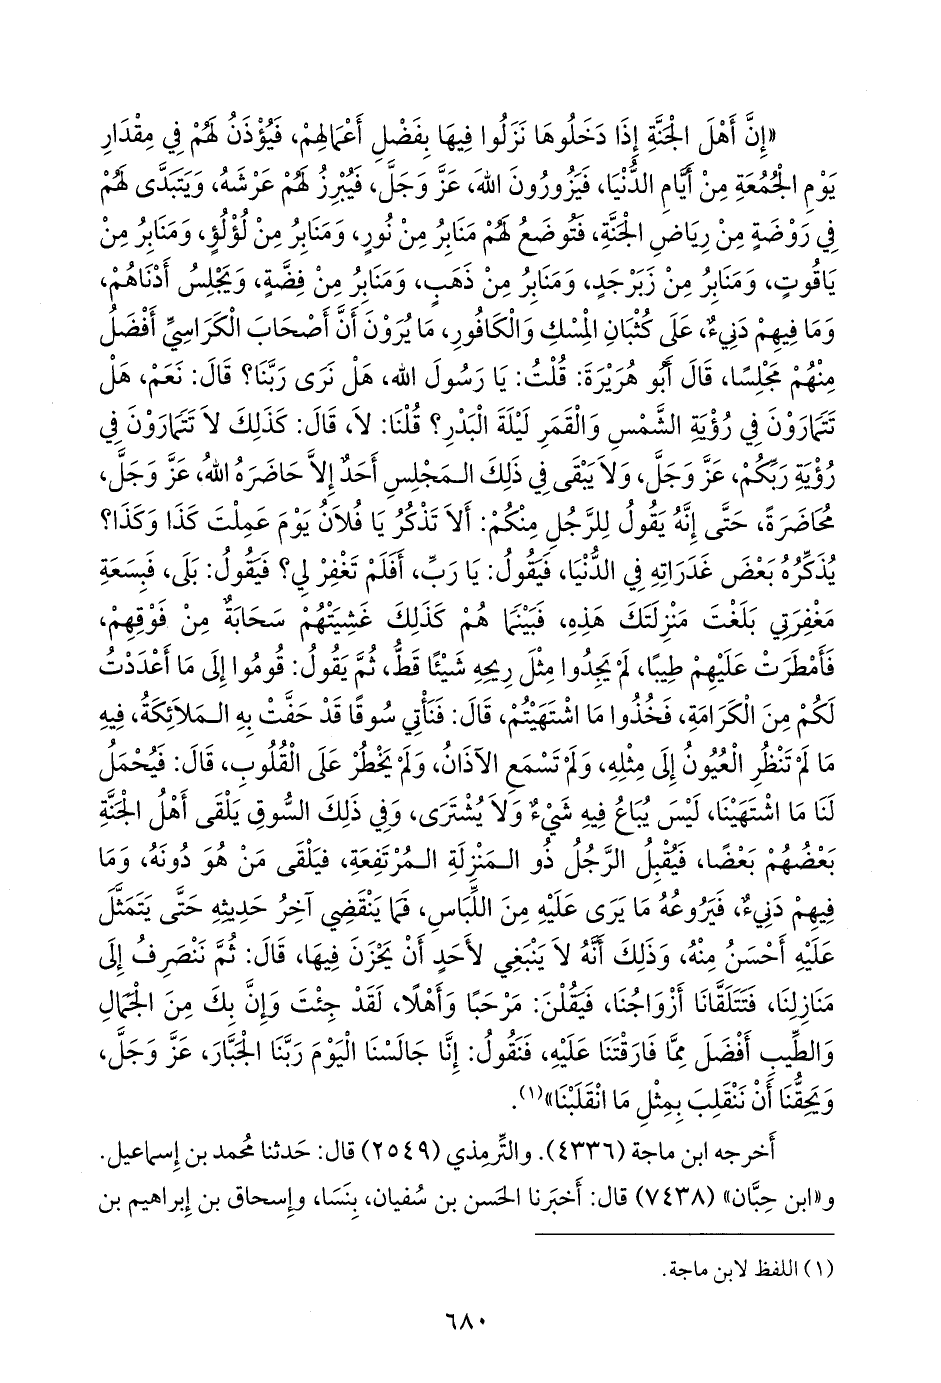 «إِنَّ أَهْلَ الْجَنَّةِ إِذَا دَخَلُوهَا نَزَلُوا فِيهَا بِفَضْلِ أَعْمَالِهِمْ، فَيُؤْذَنُ لَهُمْ فِي مِقْدَارِ
يَوْمِ الْجُمُعَةِ مِنْ أَيَّامِ الدُّنْيَا، فَيَزُورُونَ اللهَ، عَزَّ وَجَلَّ، فَيُبْرِزُ لَهُمْ عَرْشَهُ، وَيَتَبَدَّى لَهُمْ
فِي رَوْضَةٍ مِنْ رِيَاضِ الْجَنَّةِ، فَتُوضَعُ لَهُمْ مَنَابِرُ مِنْ نُورٍ، وَمَنَابِرُ مِنْ لُؤْلُؤٍ، وَمَنَابِرُ مِنْ
يَاقُوتٍ، وَمَنَابِرُ مِنْ زَبَرْجَدٍ، وَمَنَابِرُ مِنْ ذَهَبٍ، وَمَنَابِرُ مِنْ فِضَّةٍ، وَيَجْلِسُ أَدْنَاهُمْ،
وَمَا فِيهِمْ دَنِيءٌ، عَلَى كُثْبَانِ الْمِسْكِ وَالْكَافُورِ، مَا يُرَوْنَ أَنَّ أَصْحَابَ الْكَرَاسِيِّ أَفْضَلُ
مِنْهُمْ مَجْلِسًا، قَالَ أَبُو هُرَيْرَةَ: قُلْتُ: يَا رَسُولَ الله، هَلْ نَرَى رَبَّنَا؟ قَالَ: نَعَمْ، هَلْ
تَتَمَارَوْنَ فِي رُؤْيَةِ الشَّمْسِ وَالْقَمَرِ لَيْلَةَ الْبَدْرِ؟ قُلْنَا: لاَ، قَالَ: كَذَلِكَ لاَ تَتَمَارَوْنَ فِي
رُؤْيَةِ رَبِّكُمْ، عَزَّ وَجَلَّ، وَلاَ يَبْقَى فِي ذَلِكَ الـمَجْلِسِ أَحَدٌ إِلاَّ حَاضَرَهُ اللهُ، عَزَّ وَجَلَّ،
مُحَاضَرَةً، حَتَّى إِنَّهُ يَقُولُ لِلرَّجُلِ مِنْكُمْ: أَلاَ تَذْكُرُ يَا فُلاَنُ يَوْمَ عَمِلْتَ كَذَا وَكَذَا؟
يُذَكِّرُهُ بَعْضَ غَدَرَاتِهِ فِي الدُّنْيَا، فَيَقُولُ: يَا رَبِّ، أَفَلَمْ تَغْفِرْ لِي؟ فَيَقُولُ: بَلَى، فَبِسَعَةِ
مَغْفِرَتِي بَلَغْتَ مَنْزِلَتَكَ هَذِهِ، فَبَيْنَمَا هُمْ كَذَلِكَ غَشِيَتْهُمْ سَحَابَةٌ مِنْ فَوْقِهِمْ،
فَأَمْطَرَتْ عَلَيْهِمْ طِيبًا، لَمْ يَجِدُوا مِثْلَ رِيحِهِ شَيْئًا قَطُّ، ثُمَّ يَقُولُ: قُومُوا إِلَى مَا أَعْدَدْتُ
لَكُمْ مِنَ الْكَرَامَةِ، فَخُذُوا مَا اشْتَهَيْتُمْ، قَالَ: فَنَأْتِي سُوقًا قَدْ حَفَّتْ بِهِ الـمَلاَئِكَةُ، فِيهِ
مَا لَمْ تَنْظُرِ الْعُيُونُ إِلَى مِثْلِهِ، وَلَمْ تَسْمَعِ الآذَانُ، وَلَمْ يَخْطُرْ عَلَى الْقُلُوبِ، قَالَ: فَيُحْمَلُ
لَنَا مَا اشْتَهَيْنَا، لَيْسَ يُبَاعُ فِيهِ شَيْءٌ وَلاَ يُشْتَرَى، وَفِي ذَلِكَ السُّوقِ يَلْقَى أَهْلُ الْجَنَّةِ
بَعْضُهُمْ بَعْضًا، فَيُقْبِلُ الرَّجُلُ ذُو الـمَنْزِلَةِ الـمُرْتَفِعَةِ، فَيَلْقَى مَنْ هُوَ دُونَهُ، وَمَا
فِيهِمْ دَنِيءٌ، فَيَرُوعُهُ مَا يَرَى عَلَيْهِ مِنَ اللِّبَاسِ، فَمَا يَنْقَضِي آخِرُ حَدِيثِهِ حَتَّى يَتَمَثَّلَ
عَلَيْهِ أَحْسَنُ مِنْهُ، وَذَلِكَ أَنَّهُ لاَ يَنْبَغِي لأَحَدٍ أَنْ يَحْزَنَ فِيهَا، قَالَ: ثُمَّ نَنْصَرِفُ إِلَى
مَنَازِلِنَا، فَتَتَلَقَّانَا أَزْوَاجُنَا، فَيَقُلْنَ: مَرْحَبًا وَأَهْلًا، لَقَدْ جِئْتَ وَإِنَّ بِكَ مِنَ الْجَمَالِ
وَالطِّيبِ أَفْضَلَ مِمَّا فَارَقْتَنَا عَلَيْهِ، فَنَقُولُ: إِنَّا جَالَسْنَا الْيَوْمَ رَبَّنَا الْجَبَّارَ، عَزَّ وَجَلَّ،
وَيَحِقُّنَا أَنْ نَنْقَلِبَ بِمِثْلِ مَا انْقَلَبْنَا»(١).
أَخرجه ابن ماجة (٤٣٣٦). والتِّرمِذي (٢٥٤٩) قال: حَدثنا مُحمد بن إِسماعيل.
و«ابن حِبَّان» (٧٤٣٨) قال: أَخبَرنا الحَسن بن سُفيان، بِنَسَا، وإِسحاق بن إِبراهيم بن
(١) اللفظ لابن ماجة.
٦٨٠